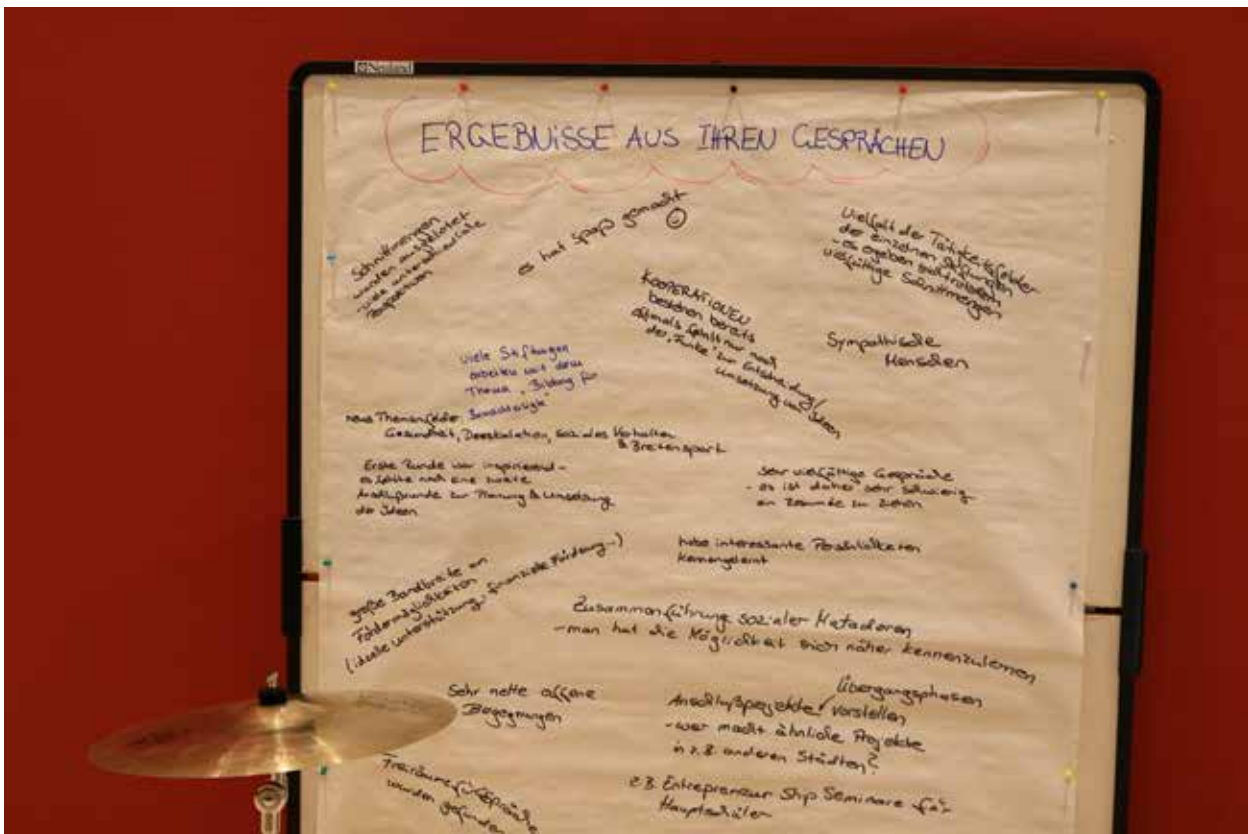 Neuland
ERGEBNISSE AUS IHREN GESPRÄCHEN
Schnittmengen
wurden ausgelotet
es hat Spaß gemacht
Vielfalt der Tätigkeitsfelder
der einzelnen Stiftungen
- es ergeben
vielfältige Schnittmengen
KOOPERATIONEN
bestehen bereits
oftmals fehlt nur noch
der "Funke" zur Entscheidung/
Umsetzung von Ideen
Sympathische
Menschen
viele Stiftungen
arbeiten mit dem
Thema "Bildung für
Benachteiligte"
neue Themenfelder:
Gesundheit, Deeskalation, soziales Verhalten
& Breitensport
Erste Runde war inspirierend -
es fehlte noch eine zweite
Anschlußrunde zur Planung & Umsetzung
der Ideen
Sehr vielfältige Gespräche
- es ist daher sehr schwierig
ein Resumée zu ziehen
habe interessante Persönlichkeiten
kennengelernt
große Bandbreite an
Fördermöglichkeiten
(ideelle Unterstützung, finanzielle Förderung...)
Zusammenführung sozialer Matadoren
- man hat die Möglichkeit sich näher kennenzulernen
Sehr nette offene
Begegnungen
Übergangsphasen
Anschlußprojekte vorstellen
- wer macht ähnliche Projekte
in z.B. anderen Städten?
z.B. Entrepreneur Ship Seminare für
Hauptschüler
Freiräume für Gespräche
wurden gefunden